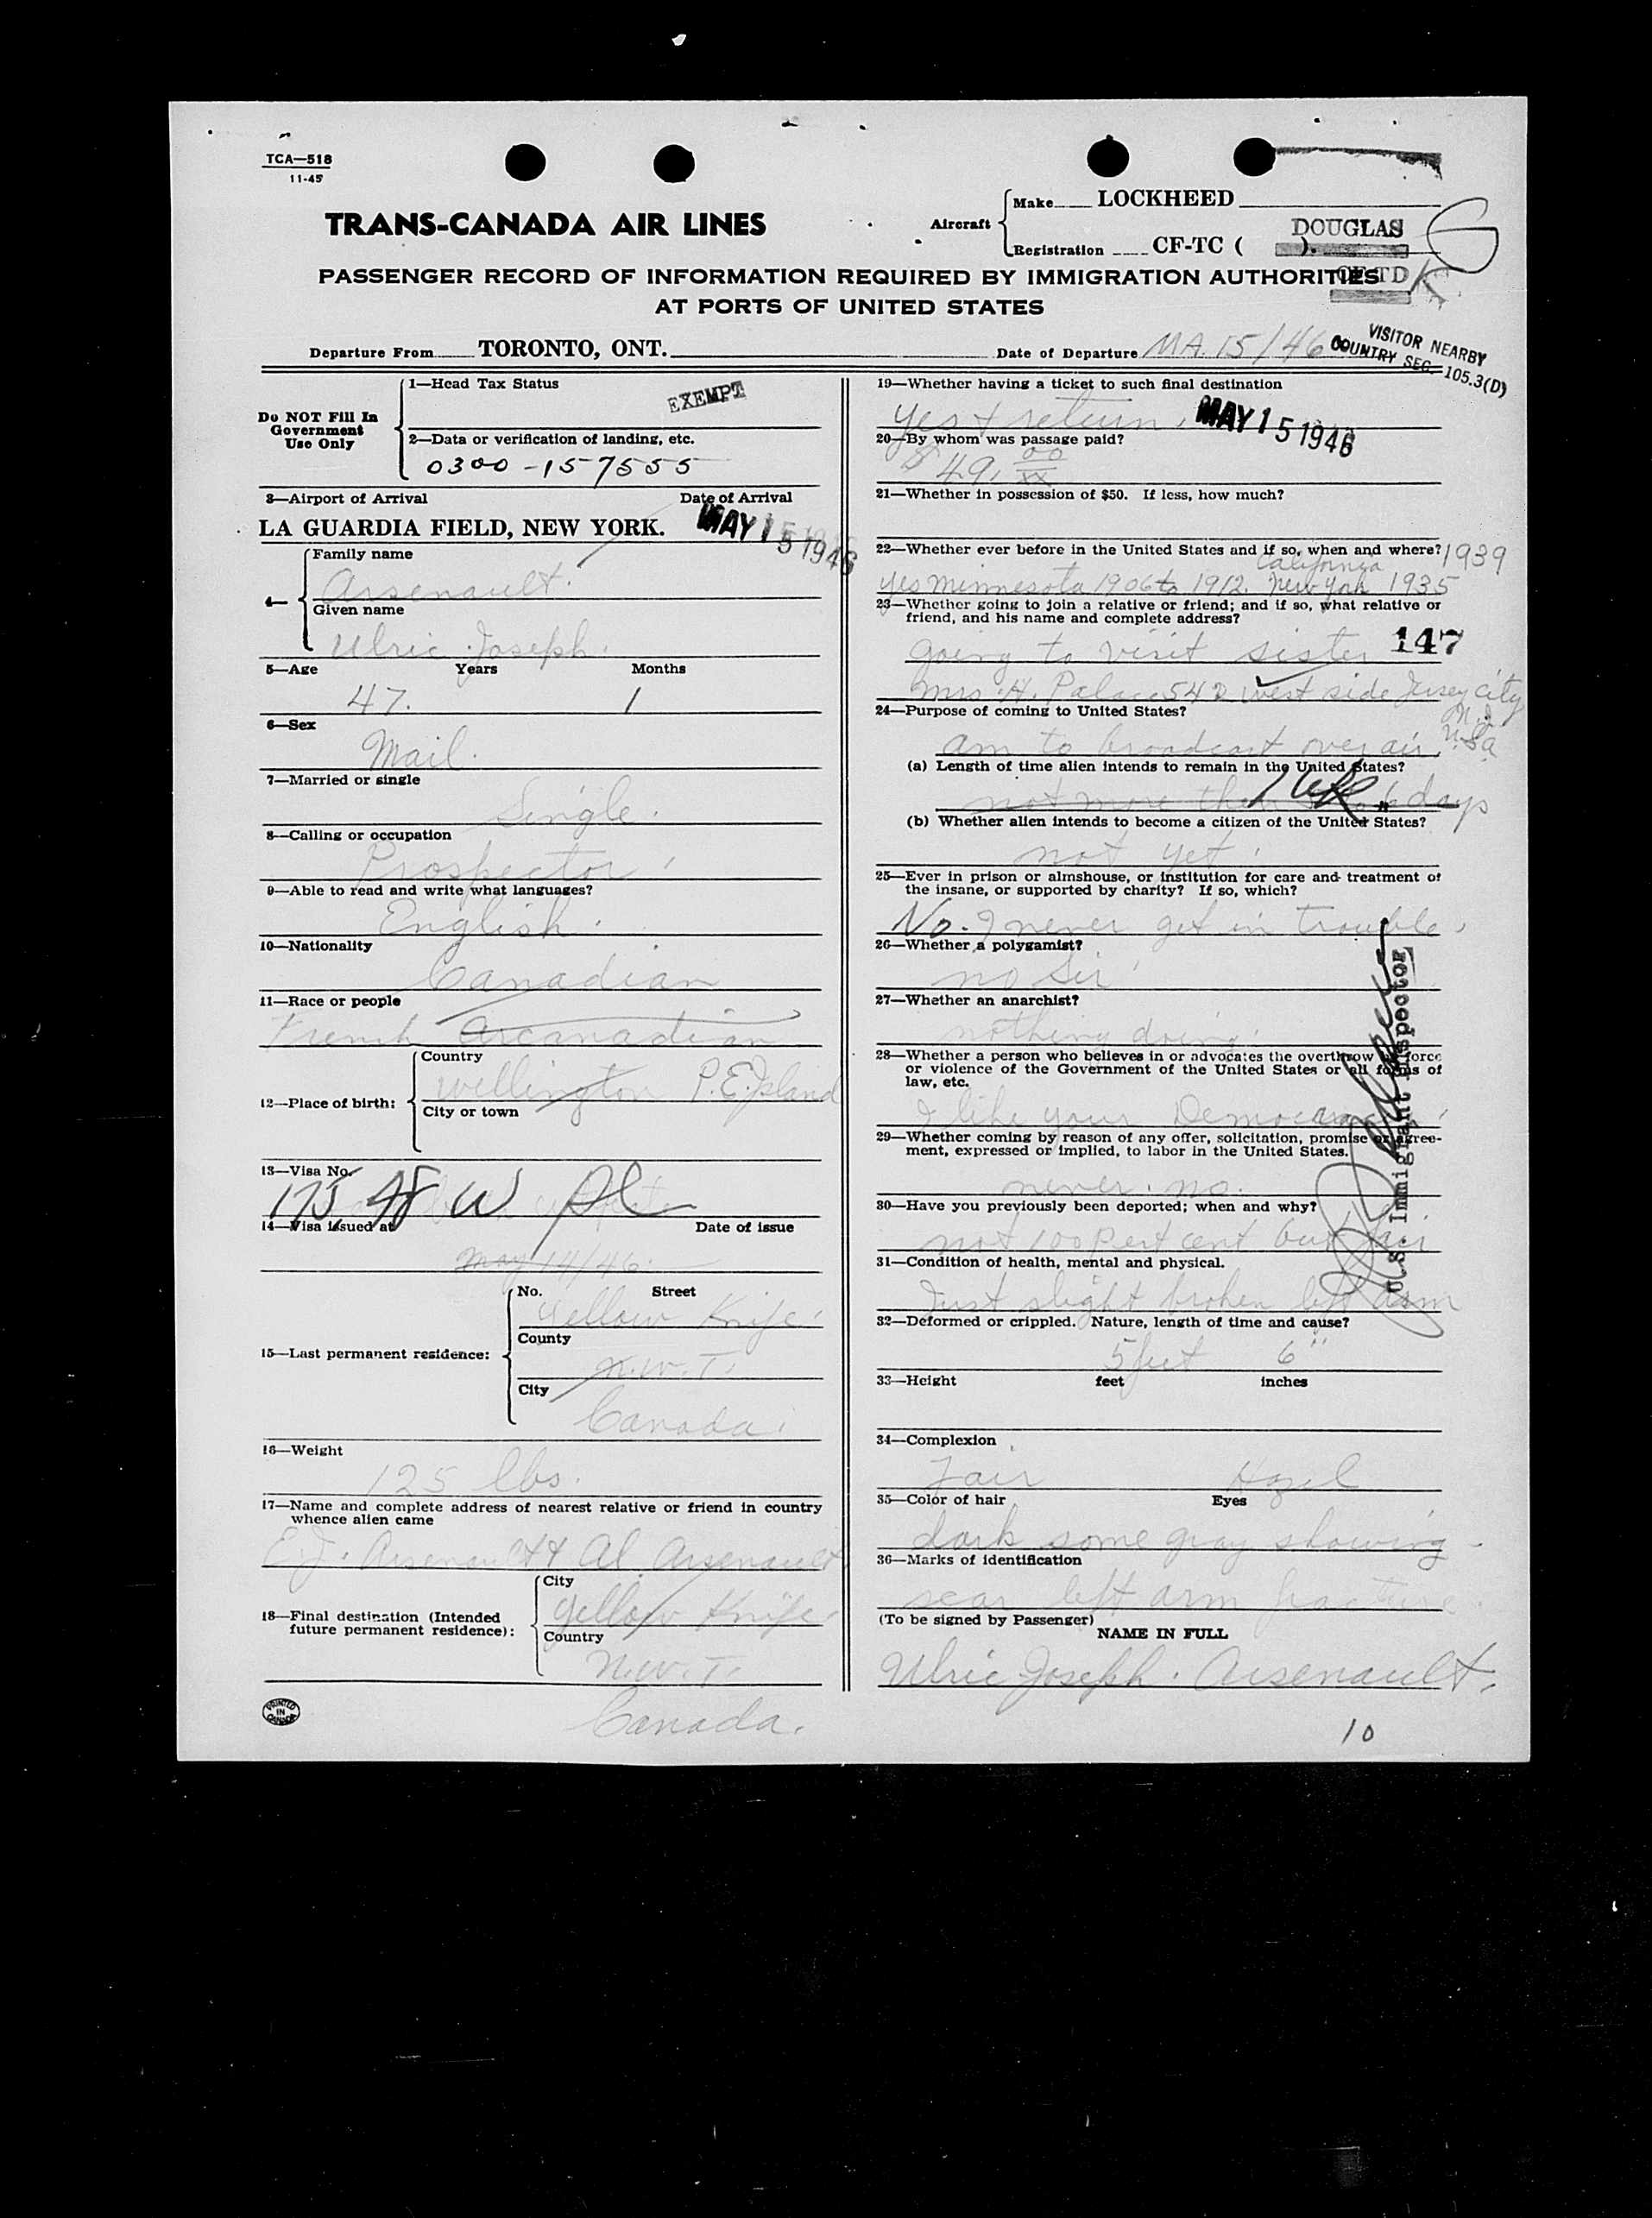 TCA—518
11-45
TRANS-CANADA AIR LINES
Aircraft
Make LOCKHEED
DOUGLAS
Registration CF-TC ( ).
PASSENGER RECORD OF INFORMATION REQUIRED BY IMMIGRATION AUTHORITIES
CF-TD
AT PORTS OF UNITED STATES
Departure From TORONTO, ONT.
Date of Departure MA. 15/46
VISITOR NEARBY
COUNTRY SEC. 105.3(D)
Do NOT Fill In
Government
Use Only
1—Head Tax Status
EXEMPT
2—Data or verification of landing, etc.
0300-157555
3—Airport of Arrival Date of Arrival
LA GUARDIA FIELD, NEW YORK. MAY 15 1946
4—
Family name
Arsenault.
Given name
Ulric Joseph.
5—Age Years Months
47. 1
6—Sex
Mail.
7—Married or single
Single.
8—Calling or occupation
Prospector
9—Able to read and write what languages?
English.
10—Nationality
Canadian
11—Race or people
French Arcanadian
12—Place of birth:
Country
Wellington P.E.Island
City or town
13—Visa No.
14—Visa issued at Date of issue
May 14/46.
15—Last permanent residence:
No. Street
Yellow Knife
County
N.W.T.
City
Canada.
16—Weight
125 lbs.
17—Name and complete address of nearest relative or friend in country
whence alien came
E.J. Arsenault & Al Arsenault
18—Final destination (Intended
future permanent residence):
City
Yellow Knife
Country
N.W.T.
Canada.
PRINTED
IN
CANADA
19—Whether having a ticket to such final destination
yes & return. MAY 15 1946
20—By whom was passage paid?
$49. 00/xx
21—Whether in possession of $50. If less, how much?
22—Whether ever before in the United States and if so, when and where? 1939
California
yes Minnesota 1906 to 1912. New York 1935
23—Whether going to join a relative or friend; and if so, what relative or
friend, and his name and complete address?
going to visit sister 147
Mrs. H. Palace 542 West side Jersey City
N.J.
U.S.a
24—Purpose of coming to United States?
am to broadcast over air.
(a) Length of time alien intends to remain in the United States?
not more than 6 days
(b) Whether alien intends to become a citizen of the United States?
not yet.
25—Ever in prison or almshouse, or institution for care and treatment of
the insane, or supported by charity? If so, which?
No. I never get in trouble.
26—Whether a polygamist?
no Sir
27—Whether an anarchist?
nothing doing.
28—Whether a person who believes in or advocates the overthrow by force
or violence of the Government of the United States or all forms of
law, etc.
I like your Democracy
29—Whether coming by reason of any offer, solicitation, promise or agree-
ment, expressed or implied, to labor in the United States.
never. no.
30—Have you previously been deported; when and why?
not 100 pert cent but fair
31—Condition of health, mental and physical.
Just slight broken left arm
32—Deformed or crippled. Nature, length of time and cause?
5 feet 6"
33—Height feet inches
34—Complexion
Fair Hazel
35—Color of hair Eyes
dark some gray showing
36—Marks of identification
scar left arm fracture
(To be signed by Passenger)
NAME IN FULL
Ulric Joseph. Arsenault.
10
U.S. Immigrant Inspector